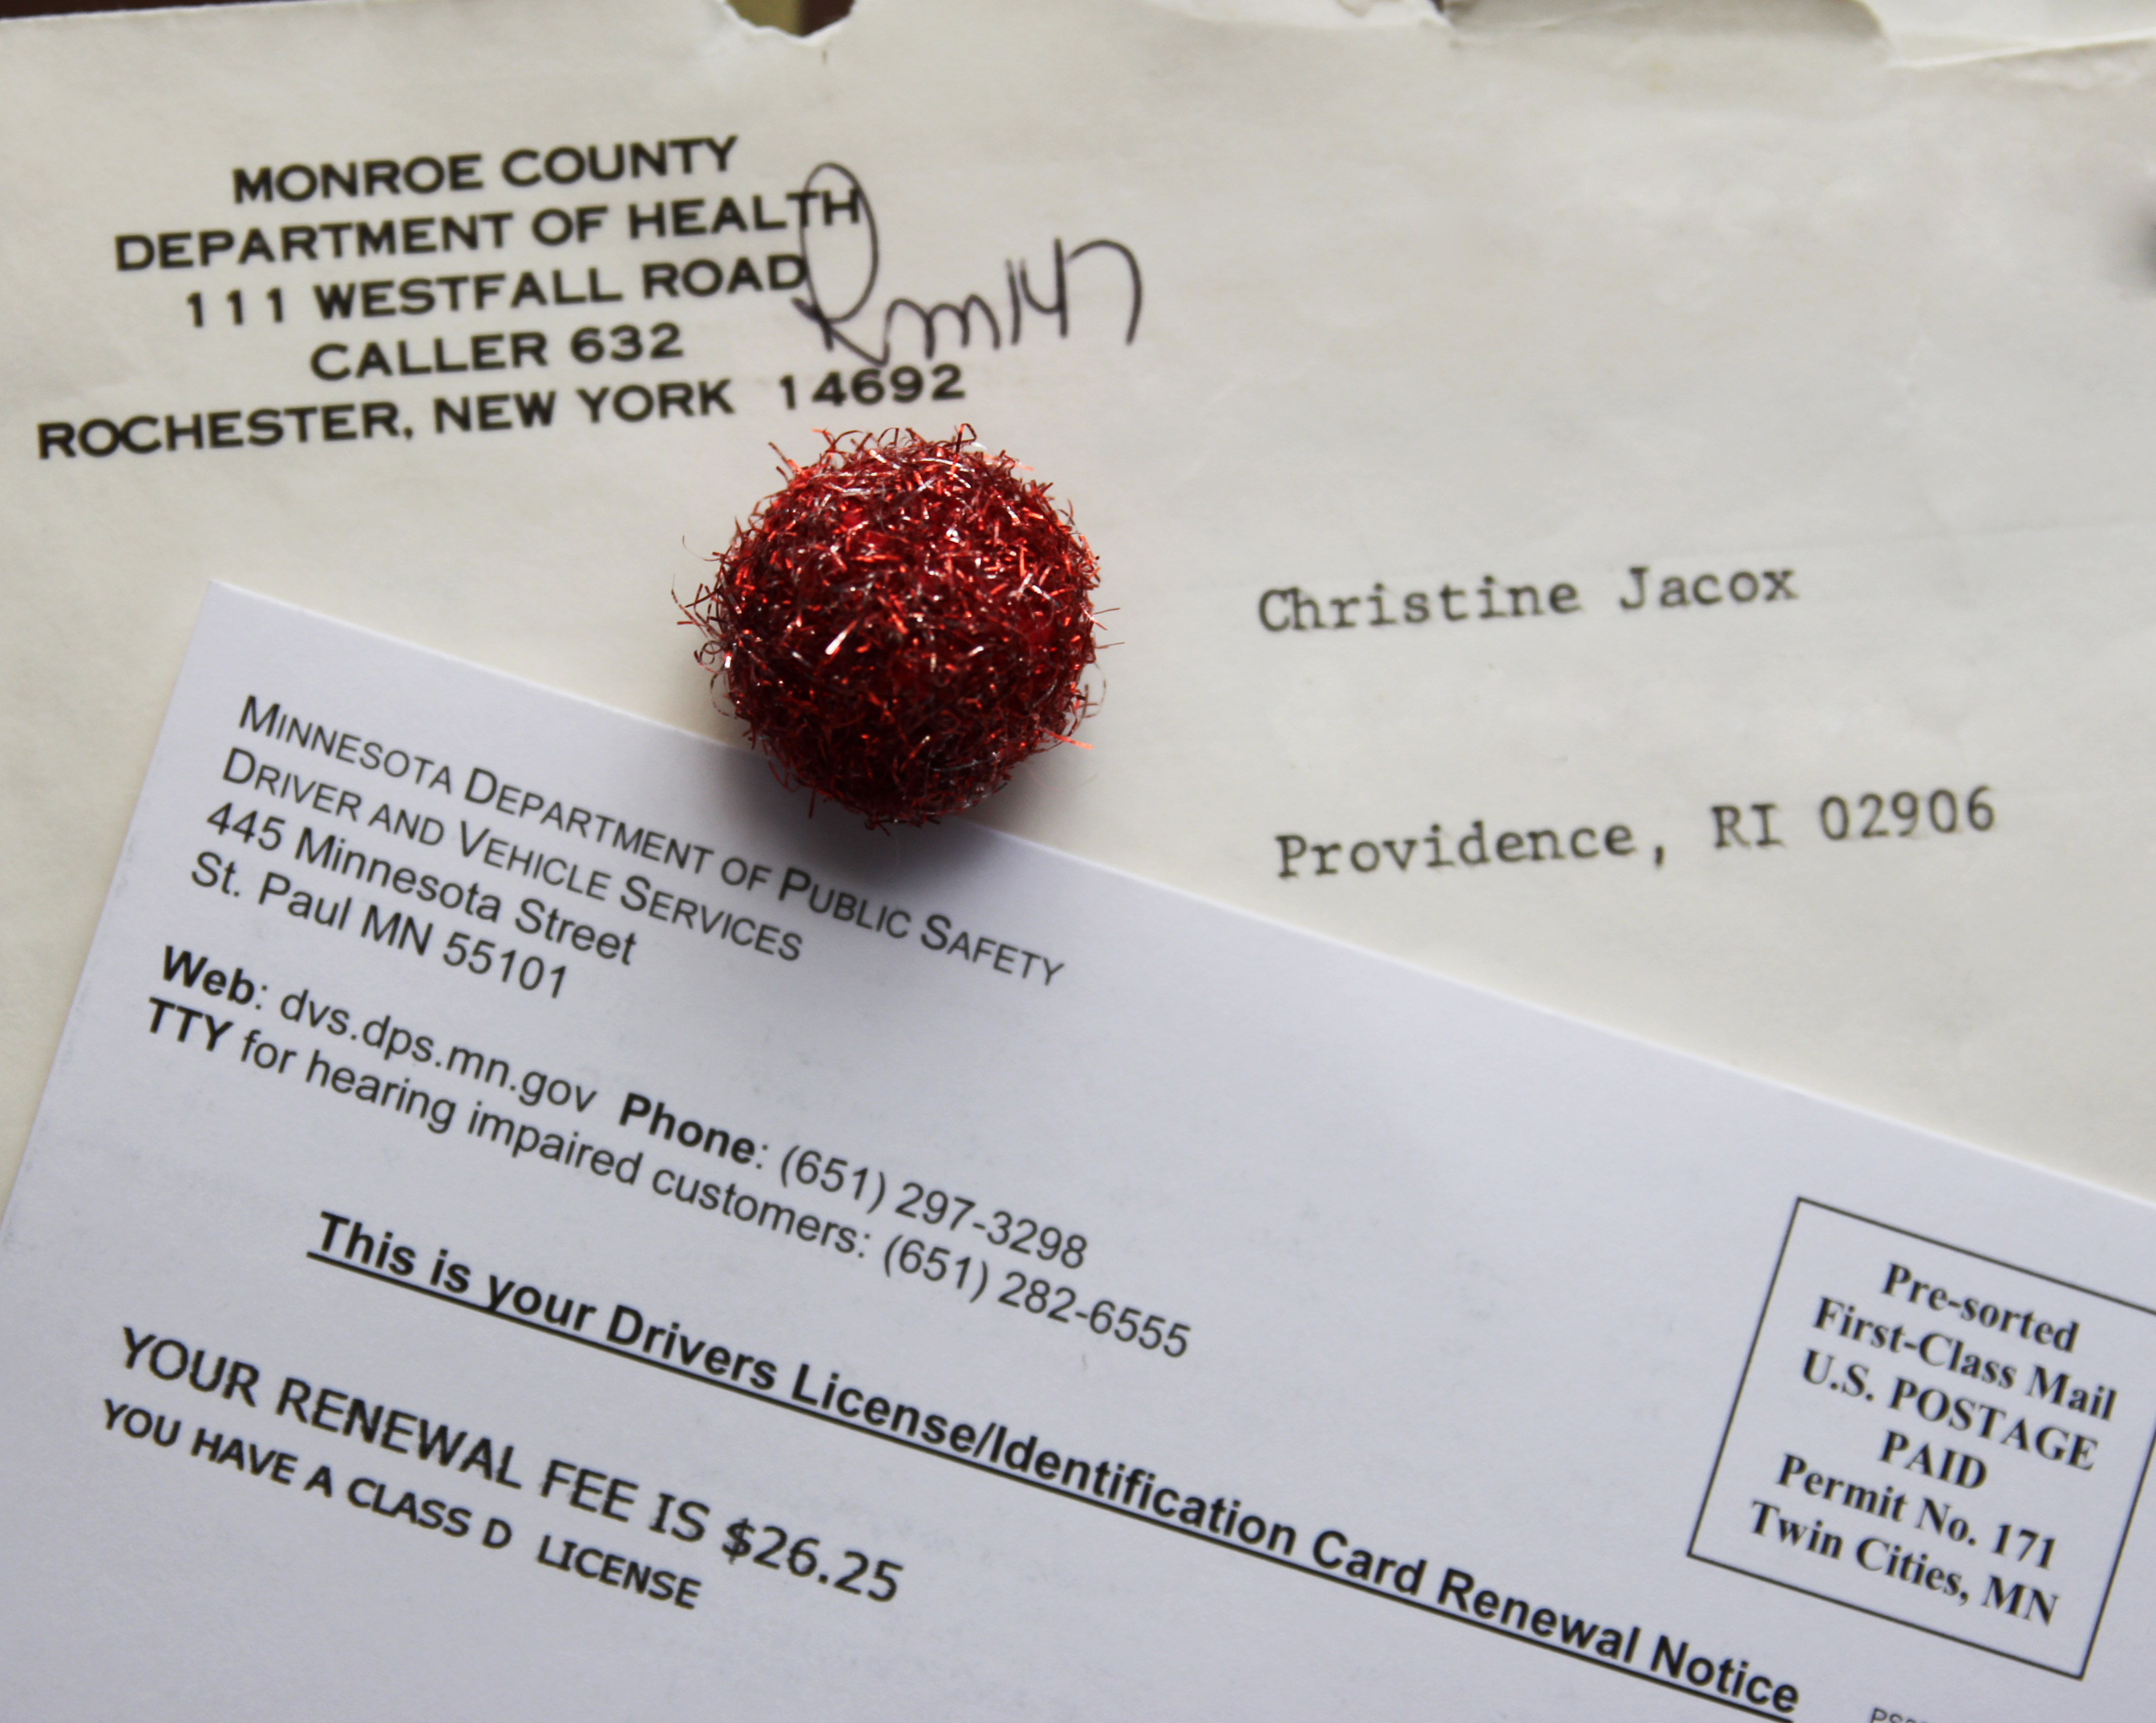 MONROE COUNTY
DEPARTMENT OF HEALTH
111 WESTFALL ROAD
CALLER 632
ROCHESTER, NEW YORK 14692
Rm 147
Christine Jacox
Providence, RI 02906
MINNESOTA DEPARTMENT OF PUBLIC SAFETY
DRIVER AND VEHICLE SERVICES
445 Minnesota Street
St. Paul MN 55101
Web: dvs.dps.mn.gov Phone: (651) 297-3298
TTY for hearing impaired customers: (651) 282-6555
This is your Drivers License/Identification Card Renewal Notice
YOUR RENEWAL FEE IS $26.25
YOU HAVE A CLASS D LICENSE
Pre-sorted
First-Class Mail
U.S. POSTAGE
PAID
Permit No. 171
Twin Cities, MN